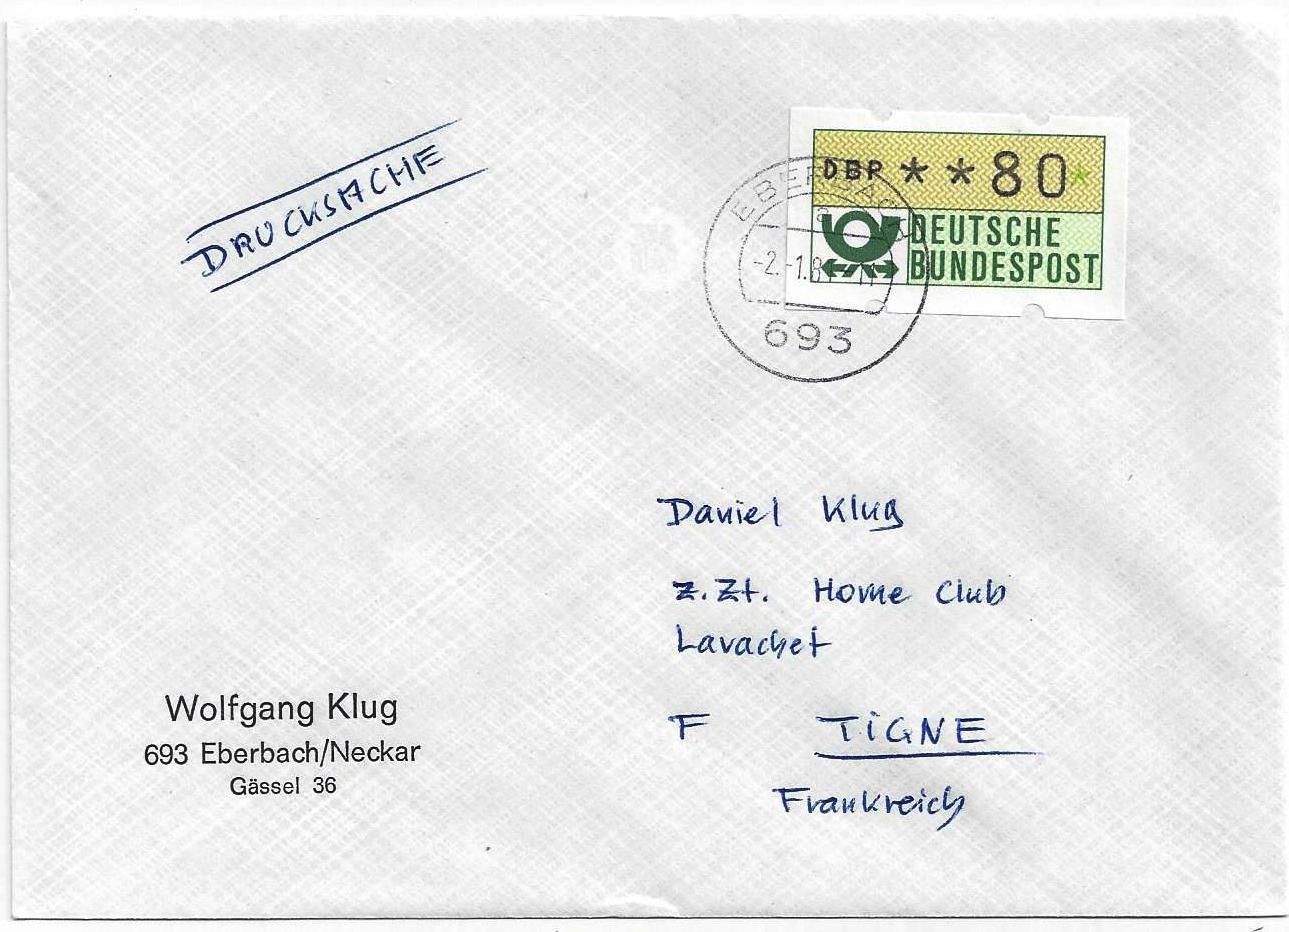 DRUCKSACHE
DBP **80*
DEUTSCHE
BUNDESPOST
EBERBACH
a
-2.-1.8
693
Daniel Klug
z. Zt. Home Club
Lavachet
F TiGNE
Frankreich
Wolfgang Klug
693 Eberbach/Neckar
Gässel 36